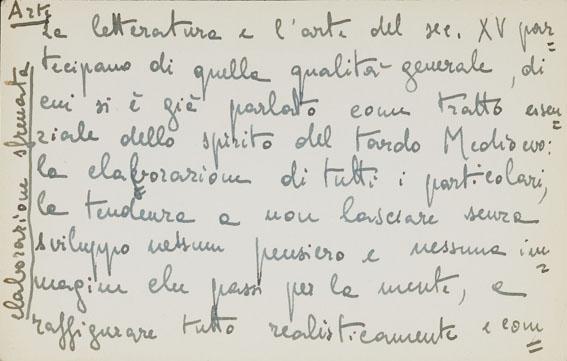 Arte
La letteratura e l'arte del sec. XV par=
tecipano di quella qualità generale, di
cui si è già parlato come tratto essen=
ziale dello spirito del tardo Medioevo:
la elaborazione di tutti i particolari,
la tendenza a non lasciare senza
sviluppo nessun pensiero e nessuna im=
magine che passi per la mente, a
raffigurare tutto realisticamente e com=
elaborazione sfrenata